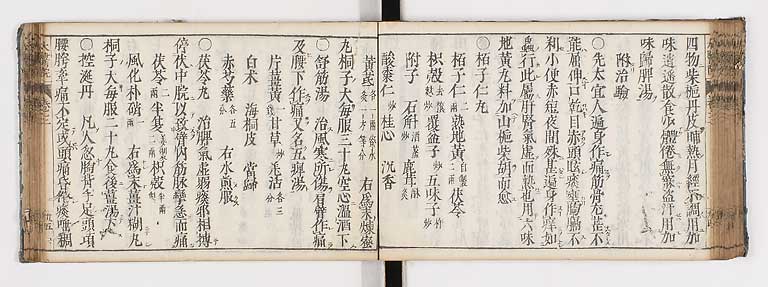 四物柴梔丹皮晡熱月經不調用加
味逍遙散食少體倦無寐盜汗用加
味歸脾湯
附治驗
○先太宜人遍身作痛筋骨尤甚不
能屈伸口乾目赤頭眩痰壅胸膈不
利小便赤短夜間殊甚遍身作痒如
蟲行此屬肝腎氣虛而熱也用六味
地黃丸料加山梔柴胡而愈
○柏子仁丸
柏子仁二兩熟地黃自製二兩茯苓
枳殼去穰炒覆盆子炒五味子杵炒
附子 石斛酒蒸鹿茸酥炙
酸棗仁炒 桂心 沉香
黃芪各一兩 右為末煉蜜
丸桐子大每服三十丸空心溫酒下
○舒筋湯 治風寒所傷肩臂作痛
及腰下作痛又名五痹湯
片薑黃 甘草炒 羌活各三分
白朮 海桐皮 當歸
赤芍藥各五分 右水煎服
○茯苓丸 治脾氣虛弱痰邪相摶
停伏中脘以致臂內筋脉攣急而痛
茯苓一兩半夏二兩枳殼半兩
風化朴硝 右為末薑汁糊丸
桐子大每服二十丸食後薑湯下
○控涎丹 凡人忽胸背手足頭項
腰胯牽痛不定或頭痛昏倦痰唾稠